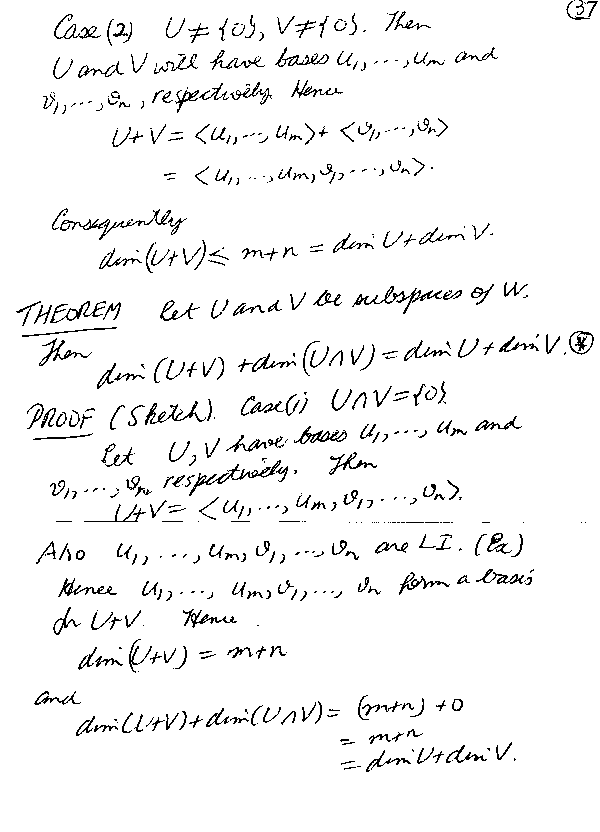 (37)
Case (2) U ≠ {0}, V ≠ {0}. Then
U and V will have bases u₁, ..., uₘ and
v₁, ..., vₙ, respectively. Hence
U+V = <u₁, ..., uₘ> + <v₁, ..., vₙ>
= <u₁, ..., uₘ, v₁, ..., vₙ>.
Consequently
dim (U+V) ≤ m+n = dim U + dim V.
THEOREM Let U and V be subspaces of W.
Then
dim (U+V) + dim (U∩V) = dim U + dim V. (*)
PROOF (Sketch). Case (i) U∩V = {0}.
Let U, V have bases u₁, ..., uₘ and
v₁, ..., vₙ respectively. Then
U+V = <u₁, ..., uₘ, v₁, ..., vₙ>.
Also u₁, ..., uₘ, v₁, ..., vₙ are LI. (Ex)
Hence u₁, ..., uₘ, v₁, ..., vₙ form a basis
for U+V. Hence
dim (U+V) = m+n
and
dim (U+V) + dim (U∩V) = (m+n) + 0
= m+n
= dim U + dim V.